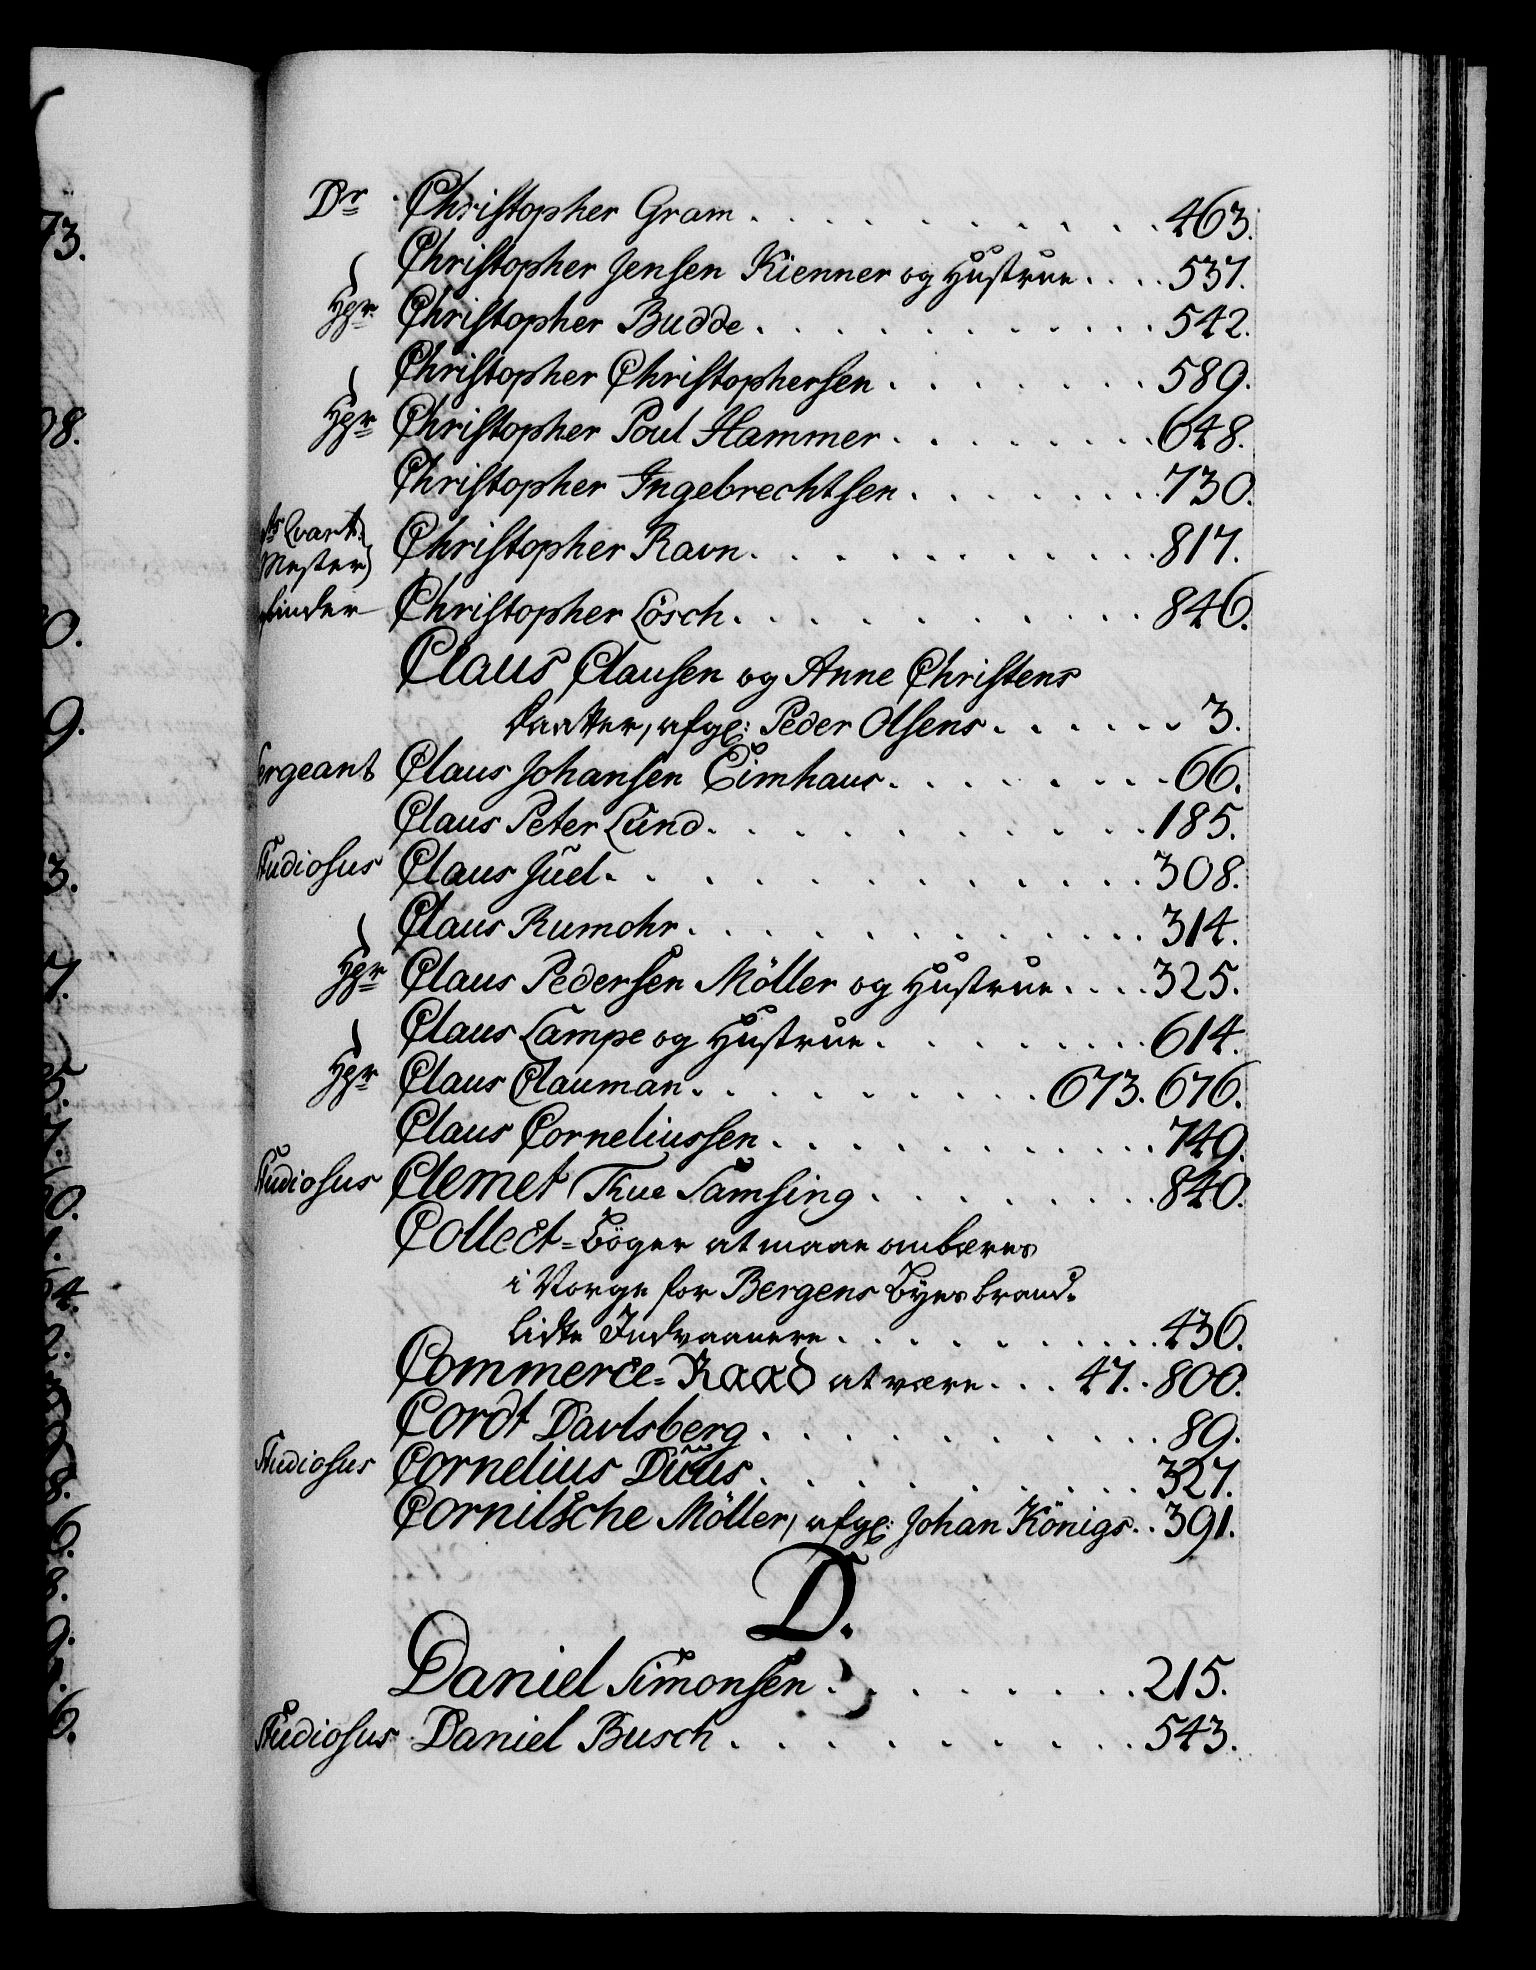 Dr Christopher Gram . . . . . . . . . . . 463.
Christopher Jensen Kienner og Hustrue . . . . 537.
Hgr Christopher Budde . . . . . . . . . . . 542.
Christopher Christophersen . . . . . . . 589.
Hgr Christopher Poul Hammer . . . . . . . . 648.
Christopher Ingebrechtsen . . . . . . . 730.
Qvart:
Mester Christopher Ravn . . . . . . . . . . . 817.
Christopher Lösch . . . . . . . . . . 846.
Claus Clausen og Anne Christens
Daatter, afg: Peder Olsens . . . . . . 3.
Sergeant Claus Johansen Eimhaus . . . . . . . . 66.
Claus Peter Lund . . . . . . . . . . . 185.
Studiosus Claus Juel . . . . . . . . . . . . . 308.
Claus Rumohr . . . . . . . . . . . . 314.
Hgr Claus Pedersen Möller og Hustrue . . . . 325.
Claus Lampe og Hustrue . . . . . . . . 614.
Hgr Claus Clauman . . . . . . . . . 673. 676.
Claus Corneliussen . . . . . . . . . . 749.
Studiosus Clemet Thue Samsing . . . . . . . . 840.
Collect=Bøger at maae ombæres
i Norge for Bergens Byes brand=
lidte Indvaanere . . . . . . . . . 436.
Commerce=Raad at være . . . 47. 800.
Cordt Davlsberg . . . . . . . . . . . 89.
Studiosus Cornelius Duus . . . . . . . . . . 327.
Cornilsche Möller, afg: Johan Königs . . 391.
D.
Daniel Simonsen . . . . . . . . . 215.
Studiosus Daniel Busch . . . . . . . . . . 543.